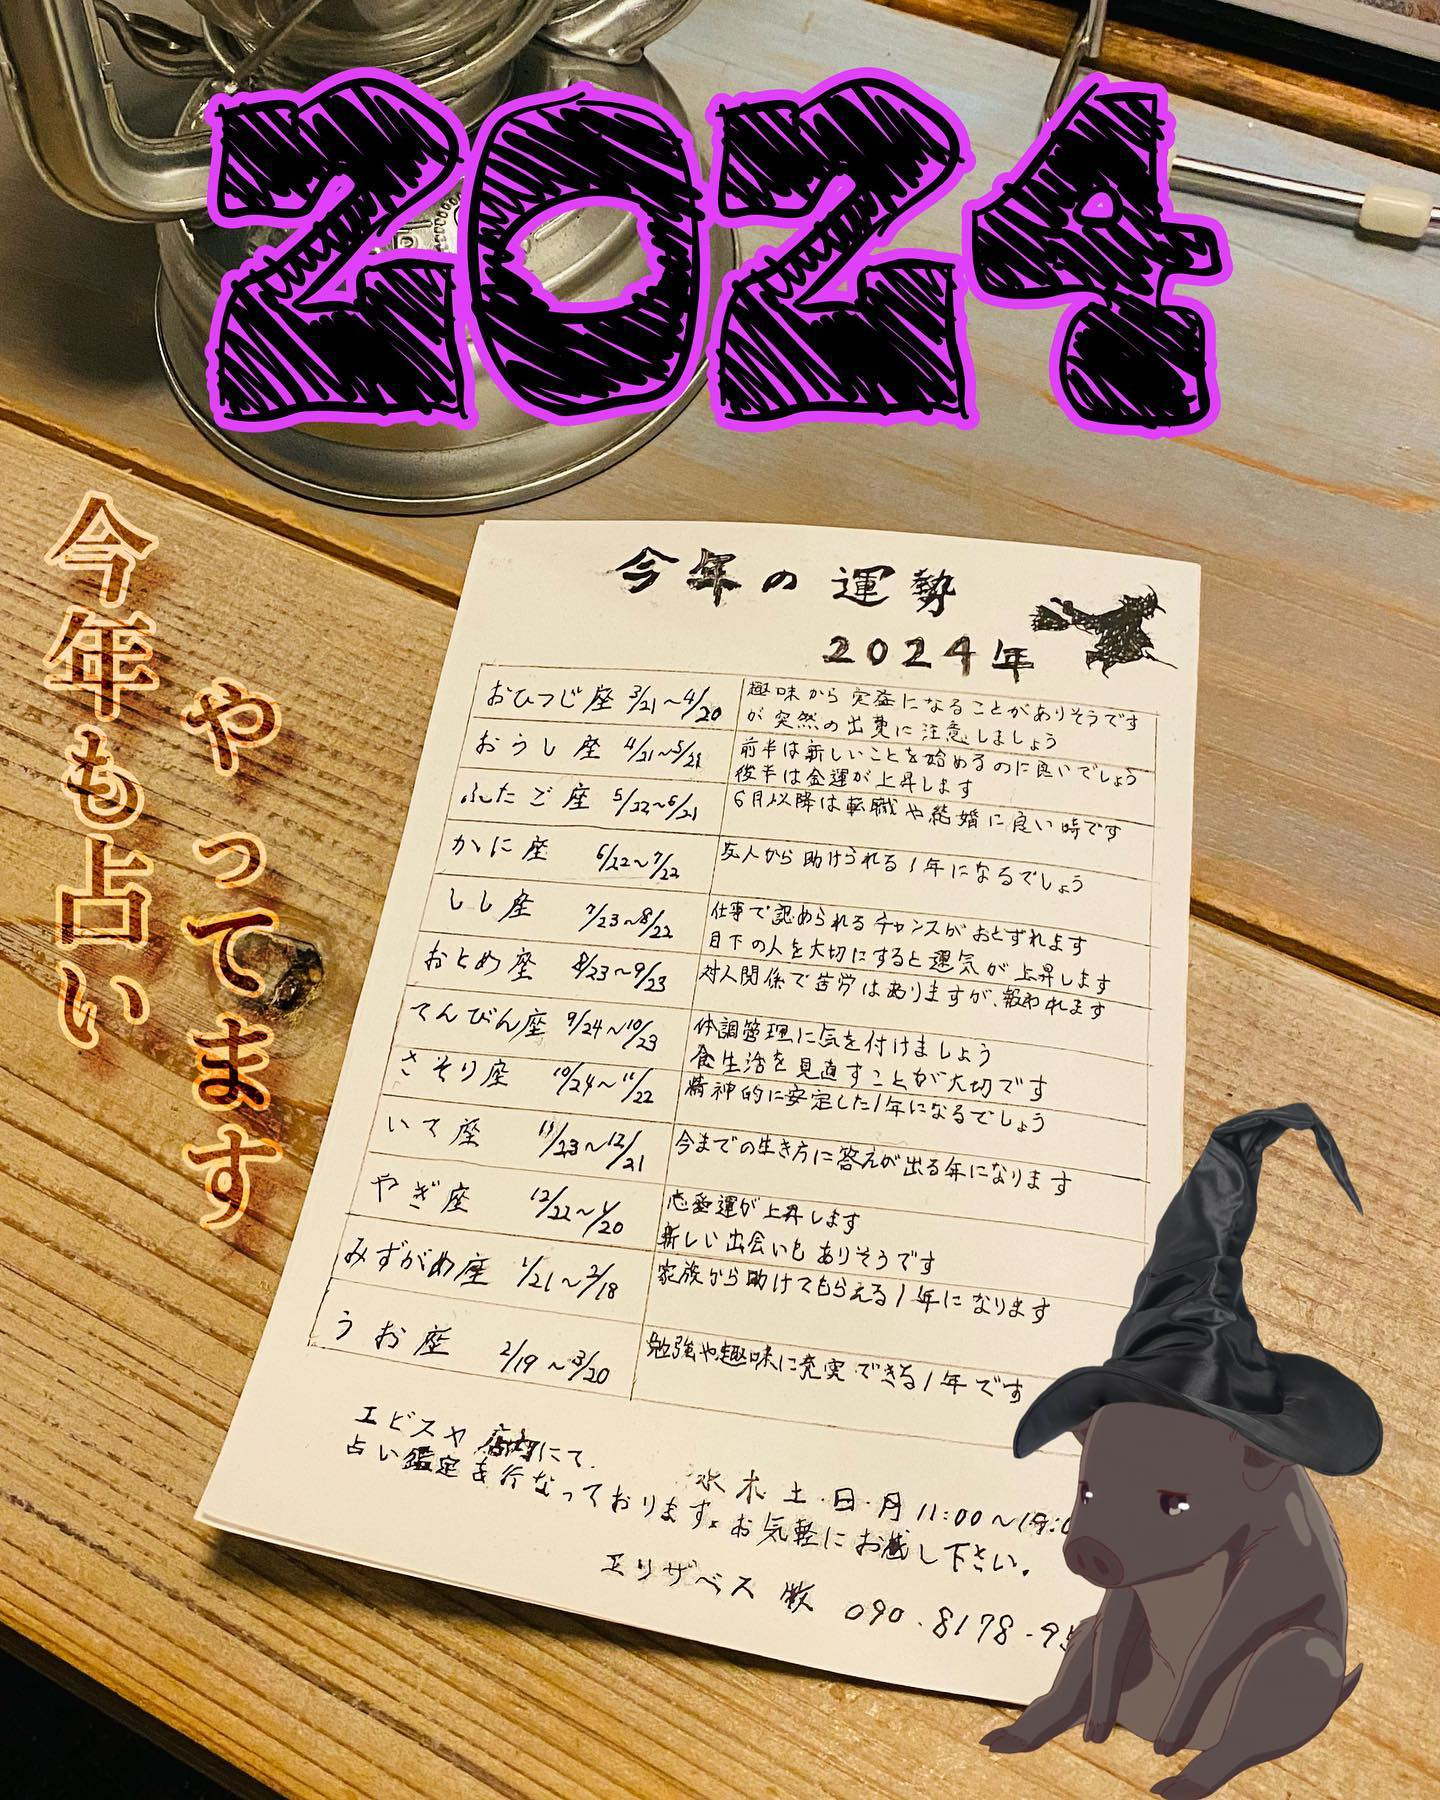 2024
今年も占い
やってます
今年の運勢
2024年
おひつじ座 3/21～4/20
趣味から実益になることがありそうです
が突然の出費に注意しましょう
おうし座 4/21～5/21
前半は新しいことを始めるのに良いでしょう
後半は金運が上昇します
ふたご座 5/22～6/21
6月以降は転職や結婚に良い時です
かに座 6/22～7/22
友人から助けられる1年になるでしょう
しし座 7/23～8/22
仕事で認められるチャンスがおとずれます
目下の人を大切にすると運気が上昇します
おとめ座 8/23～9/23
対人関係で苦労はありますが、報われます
てんびん座 9/24～10/23
体調管理に気を付けましょう
食生活を見直すことが大切です
さそり座 10/24～11/22
精神的に安定した1年になるでしょう
いて座 11/23～12/21
今までの生き方に答えが出る年になります
やぎ座 12/22～1/20
恋愛運が上昇します
新しい出会いもありそうです
みずがめ座 1/21～2/18
家族から助けてもらえる1年になります
うお座 2/19～3/20
勉強や趣味に充実できる1年です
エビスヤ店内にて
水木土・日・月 11:00～
占い鑑定を行なっております。お気軽にお越し下さい。
エリザベス 090-8178-9